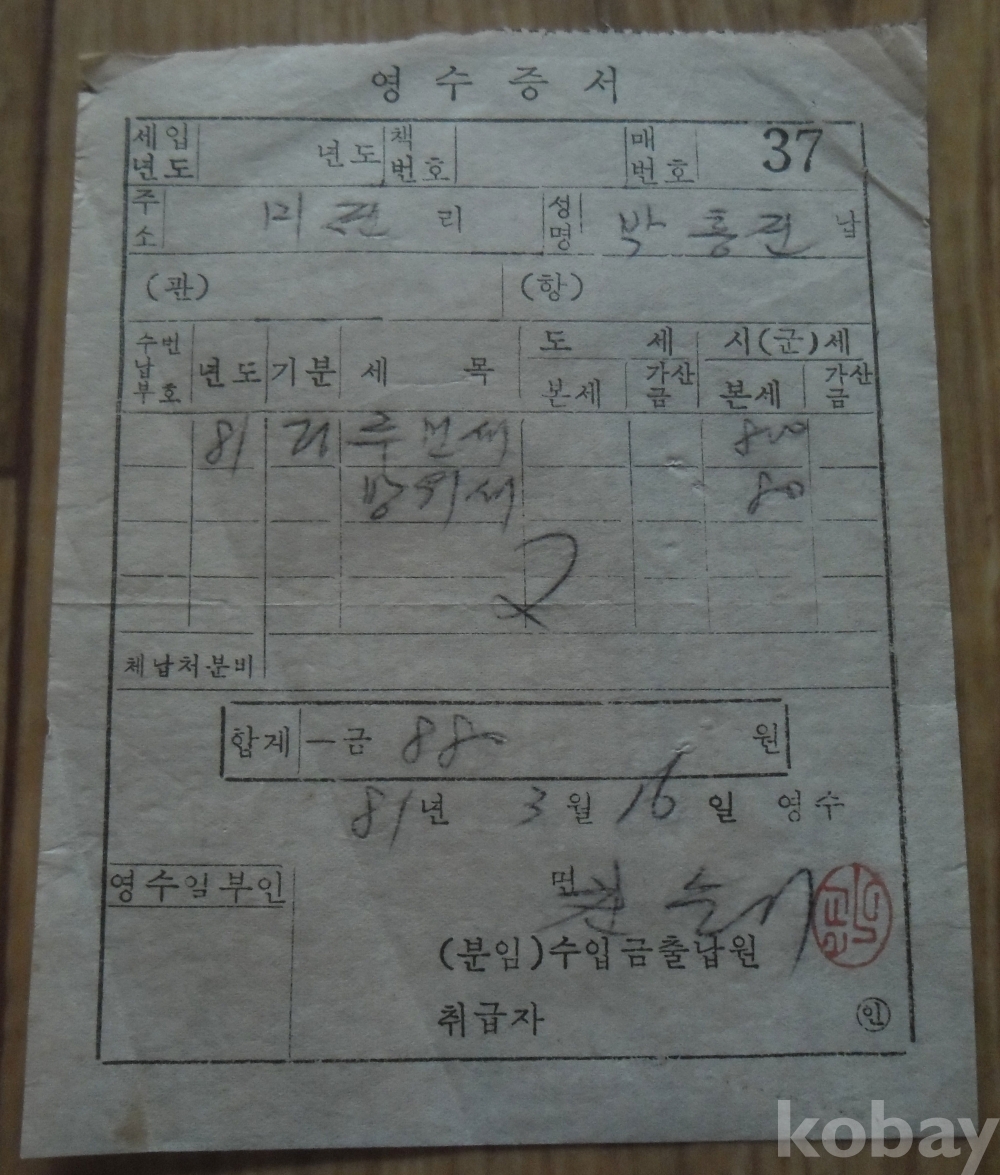 영수증서
세입년도 년도 책번호 매번호 37
주소 리 성명 박흥 납
(관) (항)
수납부번호 년도 기분 세목 도세 시(군)세
본세 가산금 본세 가산금
81 세 800
방위세 80
체납처분비
합계 一금 880 원
81년 3월 16일 영수
영수일부인
면
(분임)수입금출납원
취급자 인
kobay